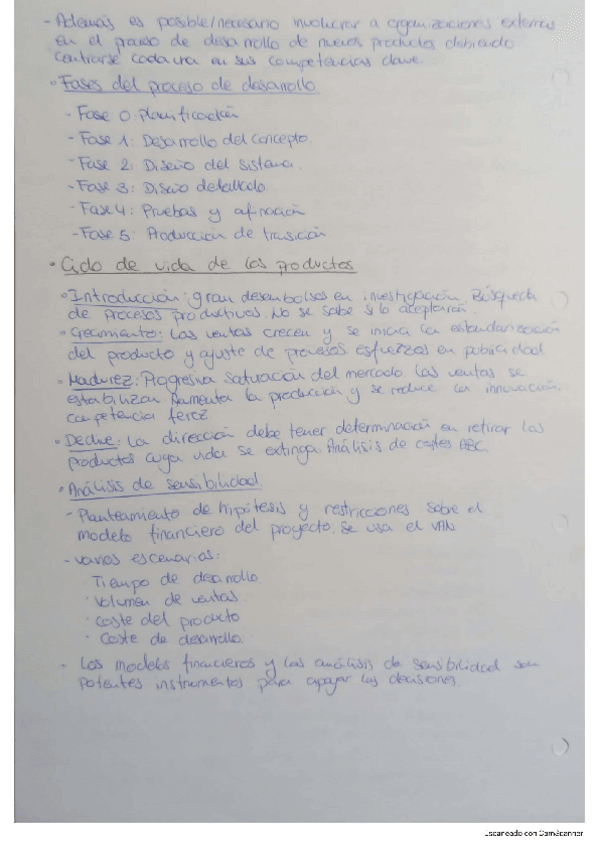 - Además es posible/necesario involucrar a organizaciones externas
en el proceso de desarrollo de nuevos productos debiendo
centrarse cada una en sus competencias clave.
· Fases del proceso de desarrollo
- Fase 0: Planificación
- Fase 1: Desarrollo del concepto.
- Fase 2: Diseño del sistema.
- Fase 3: Diseño detallado.
- Fase 4: Pruebas y afinación
- Fase 5: Producción de transición
· Ciclo de vida de los productos
· Introducción: gran desembolsos en investigación. Búsqueda
de procesos productivos. No se sabe si lo aceptarán.
· Crecimiento: Las ventas crecen y se inicia la estandarización
del producto y ajuste de procesos esfuerzos en publicidad
· Madurez: Progresiva saturación del mercado las ventas se
estabilizan. Aumenta la producción y se reduce la innovación.
competencia feroz.
· Declive: La dirección debe tener determinación en retirar los
productos cuya vida se extinga. Análisis de costes ABC.
· Análisis de sensibilidad.
- Planteamiento de hipótesis y restricciones sobre el
modelo financiero del proyecto. Se usa el VAN.
- Varios escenarios:
· Tiempo de desarrollo
· Volumen de ventas.
· Coste del producto
· Coste de desarrollo.
- Los modelos financieros y los análisis de sensibilidad son
potentes instrumentos para apoyar las decisiones.
Escaneado con CamScanner